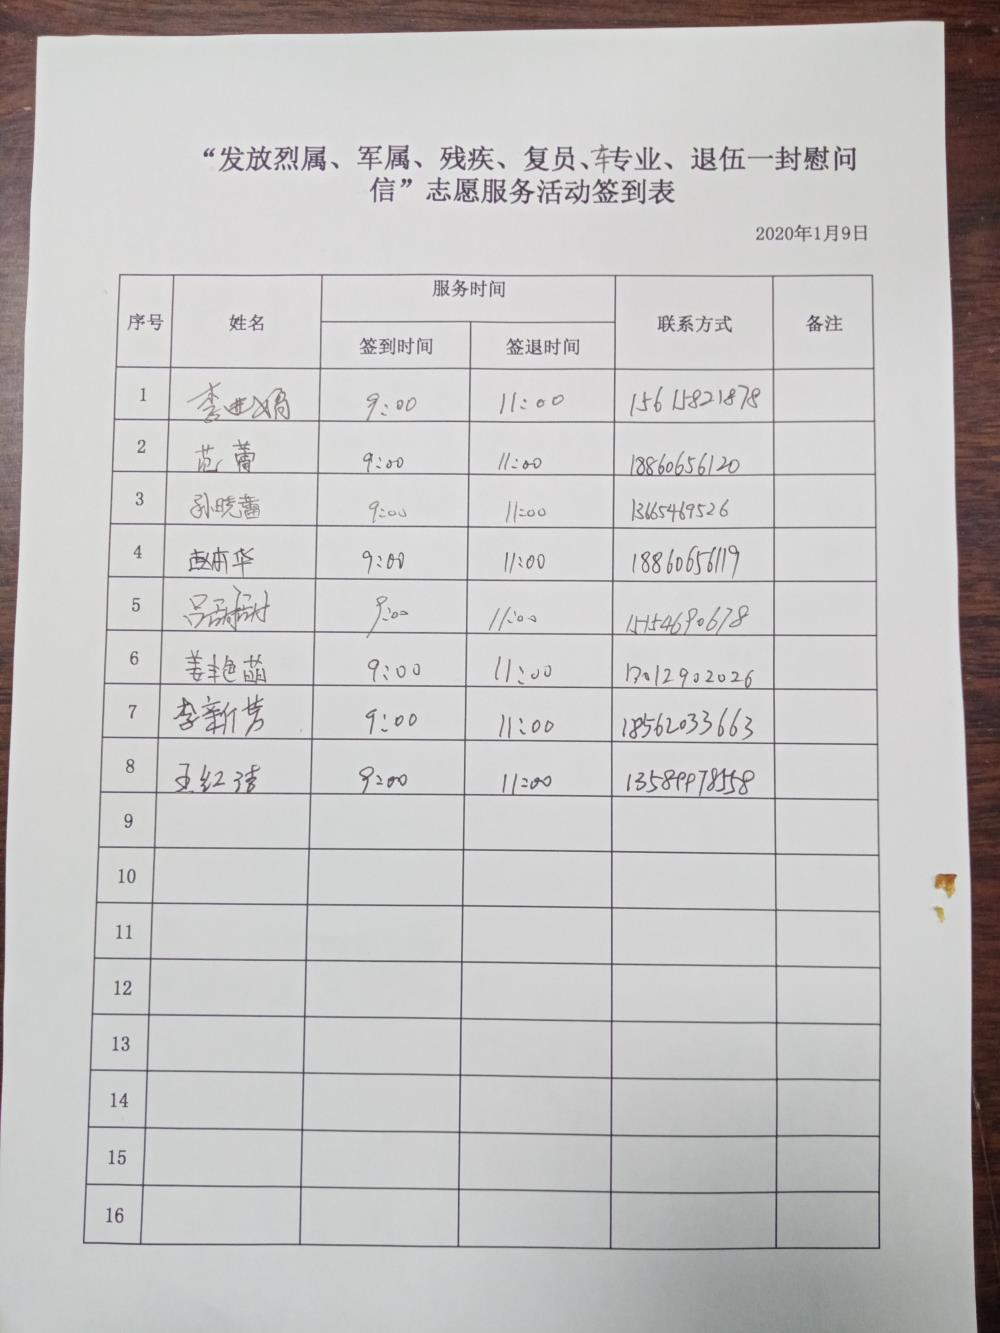 “发放烈属、军属、残疾、复员、转业、退伍一封慰问
信”志愿服务活动签到表
2020年1月9日
序号 姓名 服务时间 联系方式 备注
签到时间 签退时间
1 9:00 11:00 15615821878
2 范蕾 9:00 11:00 18860656120
3 孙晓蕾 9:00 11:00 13665469526
4 赵南华 9:00 11:00 18860656119
5 9:00 11:00 15154690678
6 姜艳萌 9:00 11:00 17012902026
7 李新芳 9:00 11:00 18562033663
8 王红洁 9:00 11:00 13589978558
9
10
11
12
13
14
15
16